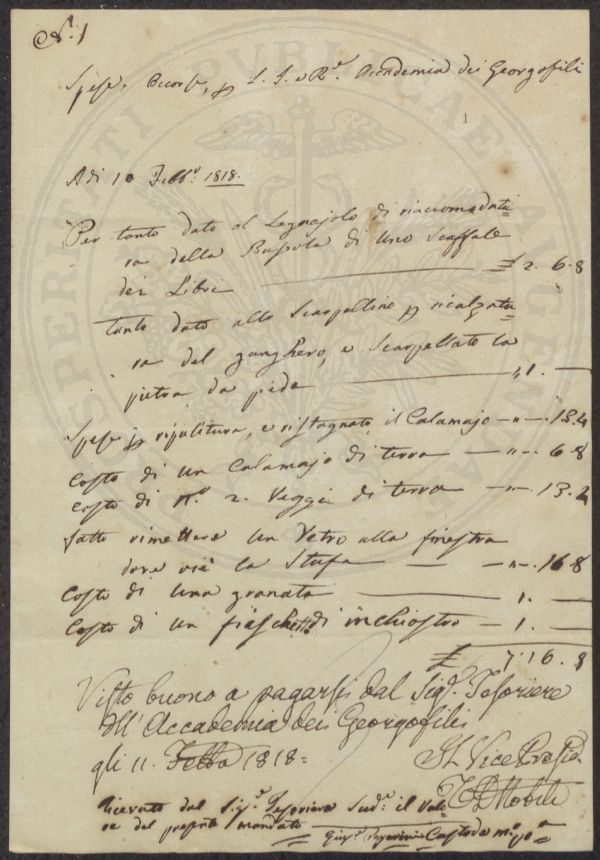 N.° 1
Spese, Occorse, p L' I. e R.e Accademia dei Georgofili
1
A di 10 Febb.o 1818.
Per tanto dato al Legnajolo di riaccomodatu=
ra della Bussola di Uno Scaffale
dei Libri £ 2. 6. 8
tanto dato allo Scarpellino p ricalzatu=
ra del ganghero, e Scarpellato la
pietra da piede " 1. —
Spese p ripulitura, e ristagnato il Calamajo — " — . 13.4
Costo di un Calamajo di terra — " — . 6 8
Costo di N.o 2. Veggi di terra — " — . 13. 4
fatto rimettere un Vetro alla finestra
dove vié la Stufa — " — . 16 8
Costo di Una granata 1. —
Costo di un fiaschetto di inchiostro — 1. —
£ 7. 16. 8
Visto buono a pagarsi dal Sig.r Tesoriere
dell'Accademia dei Georgofili
gli 11. Febbo 1818=
Il Vice Presid.
Ricevuto dal Sig.r Tesoriere Sud.o il Valo
re del presente mandato
Custode m.o p.a
PROSPERITATI PVBLICAE AVGENDAE